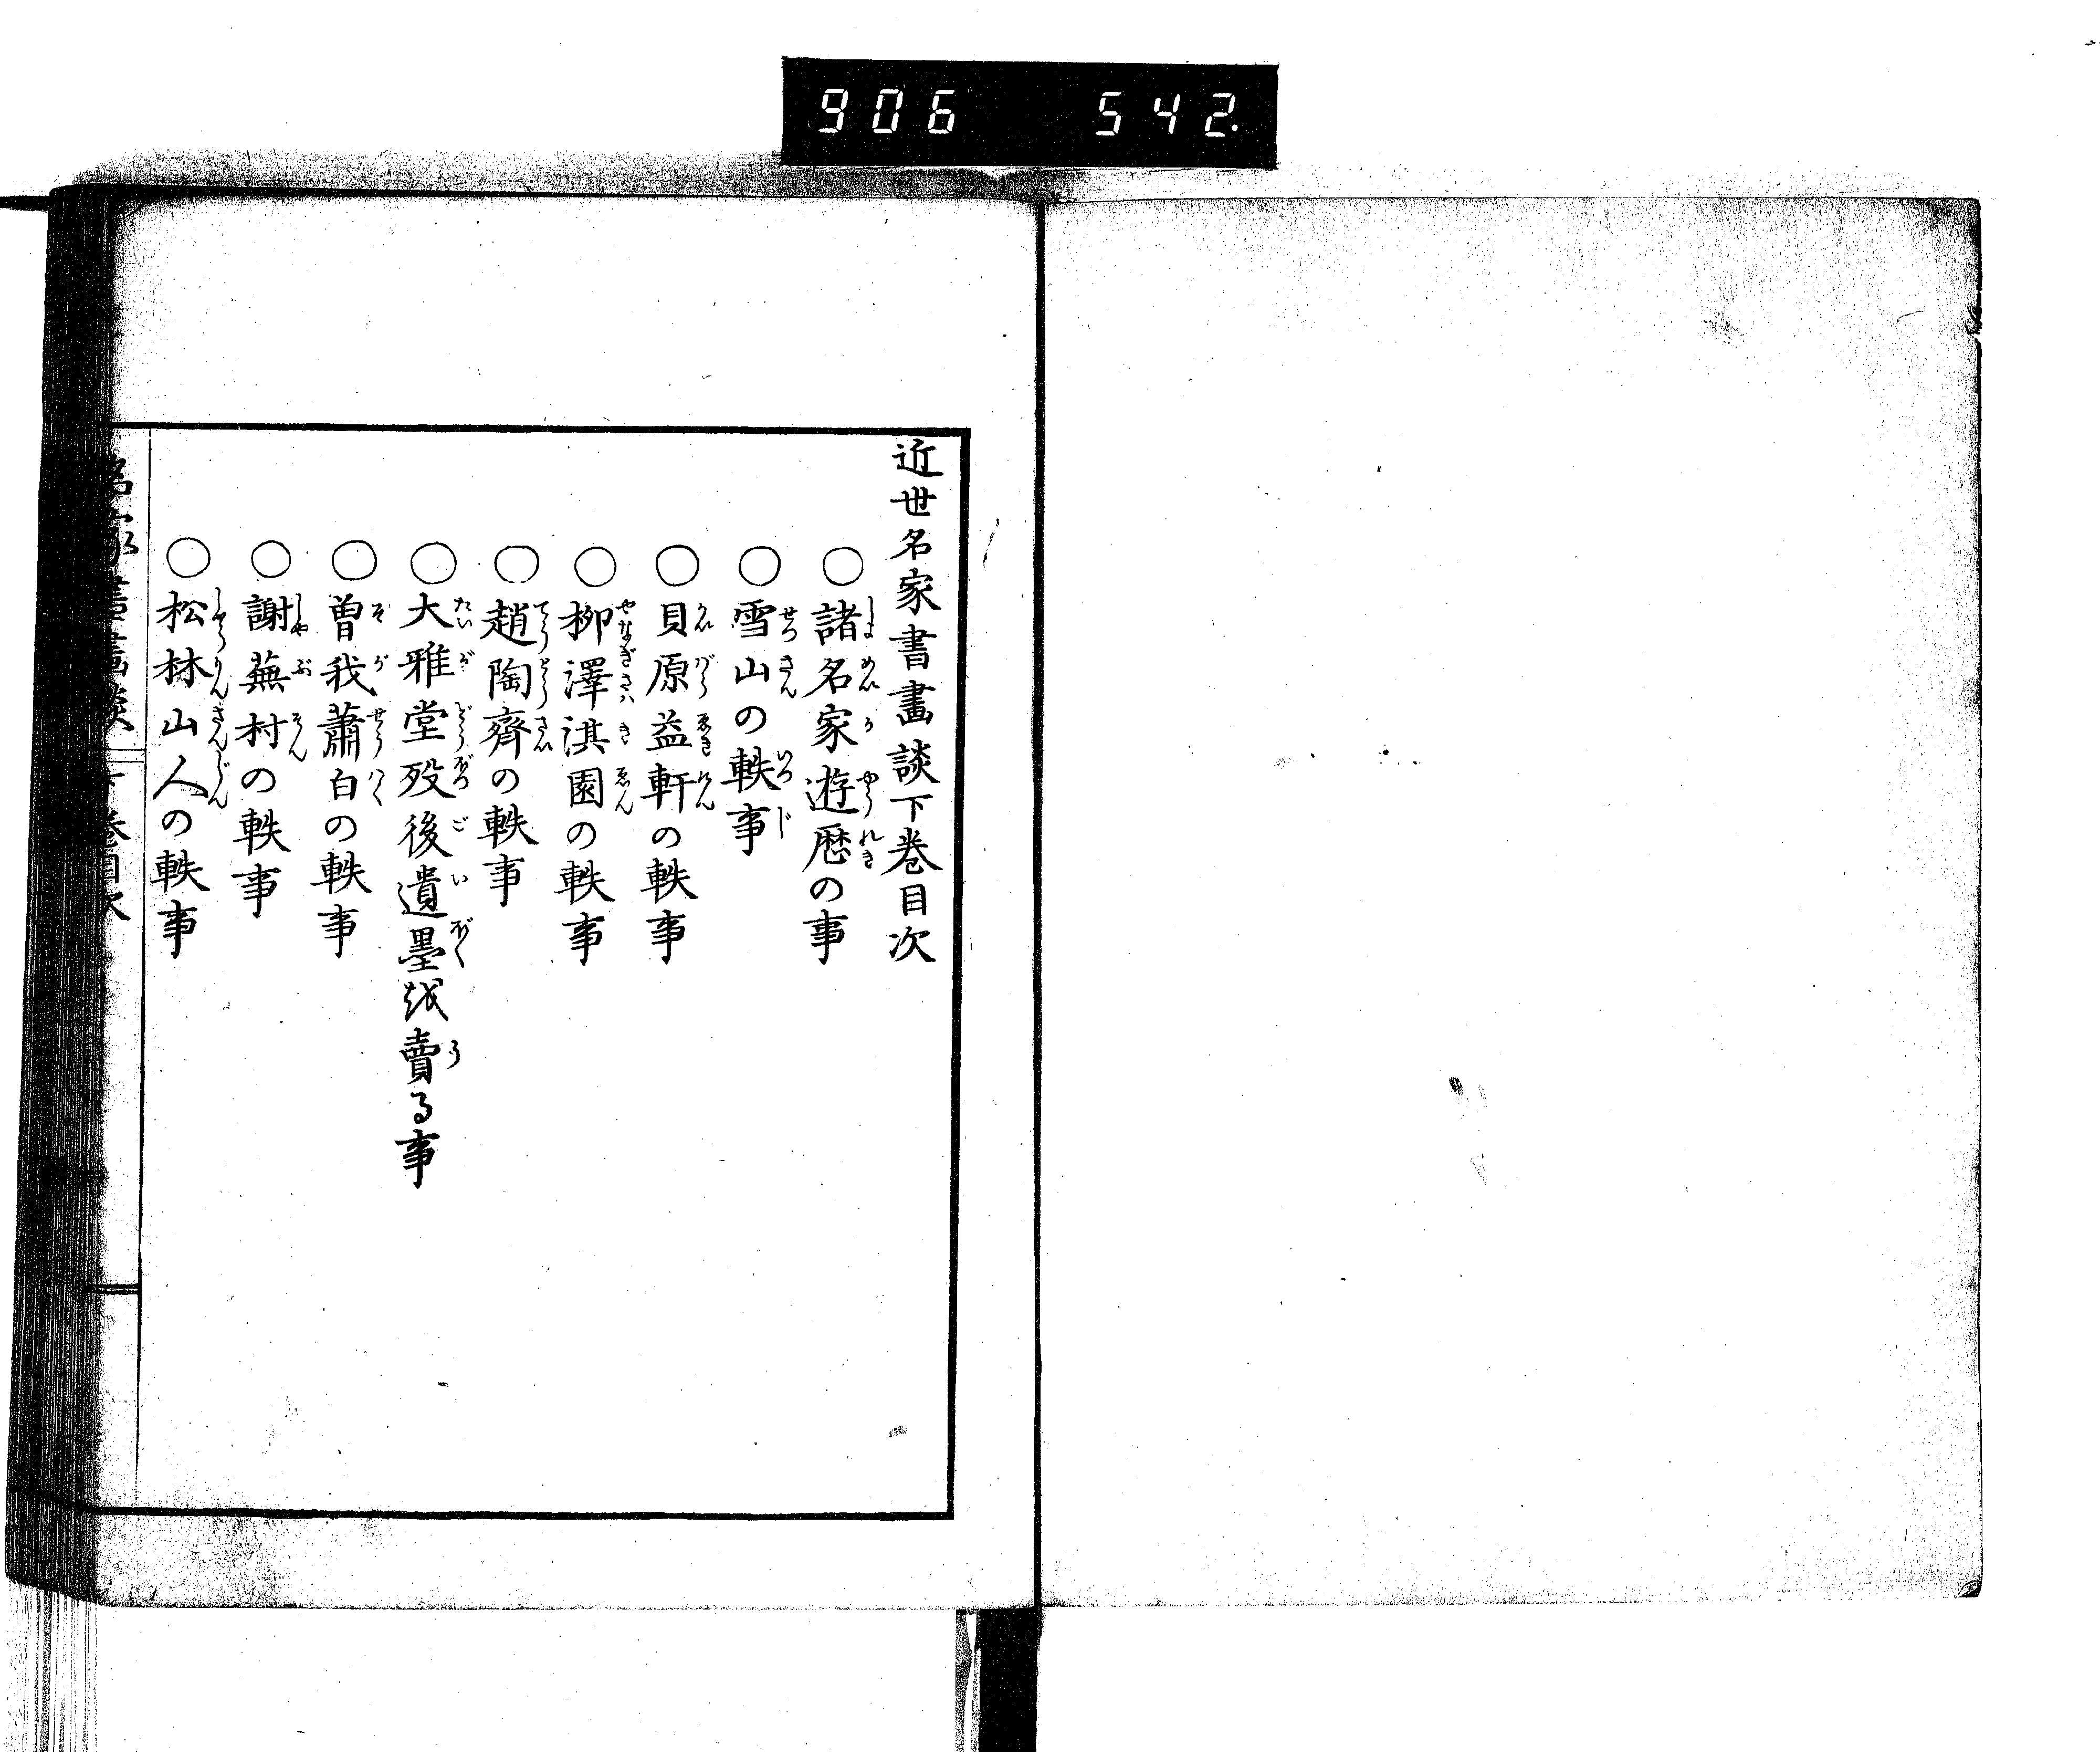 906 542
近世名家書畫談下巻目次
○諸名家遊歴の事
○雪山の軼事
○貝原益軒の軼事
○柳澤淇園の軼事
○趙陶齊の軼事
○大雅堂歿後遺墨越賣る事
○曽我蕭白の軼事
○謝蕪村の軼事
○松林山人の軼事
名家書畫談 下巻目次